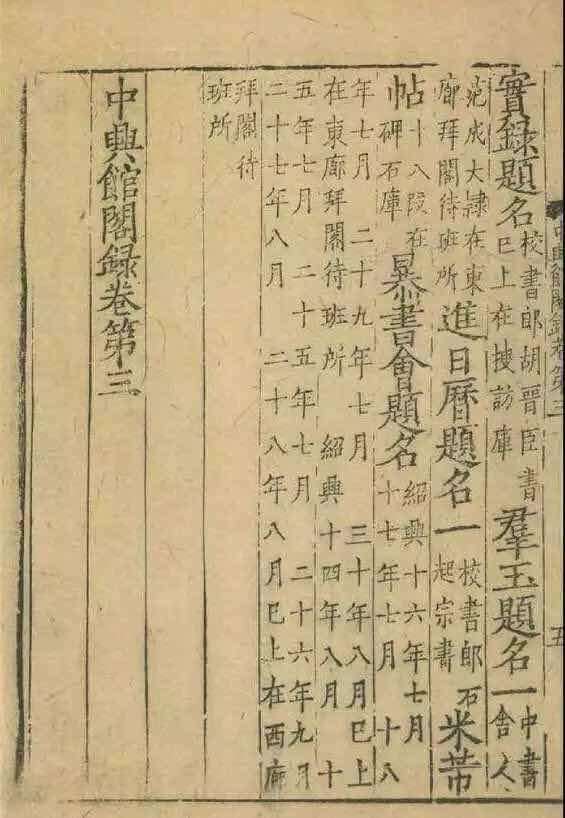 實録題名校書郎胡晉臣書巳上在搜訪庫羣玉題名一中書舍人
范成大隸在東廊拜閣待班所進日曆題名一校書郎石起宗書米芾
帖十八段在碑石庫暴書會題名紹興十六年七月十七年七月十八
年七月二十九年七月三十年八月巳上在東廊拜閣待班所紹興十四年八月十
五年七月二十五年七月二十六年九月二十七年八月二十八年八月巳上在西廊
拜閣待班所
中興館閣録卷第三
五